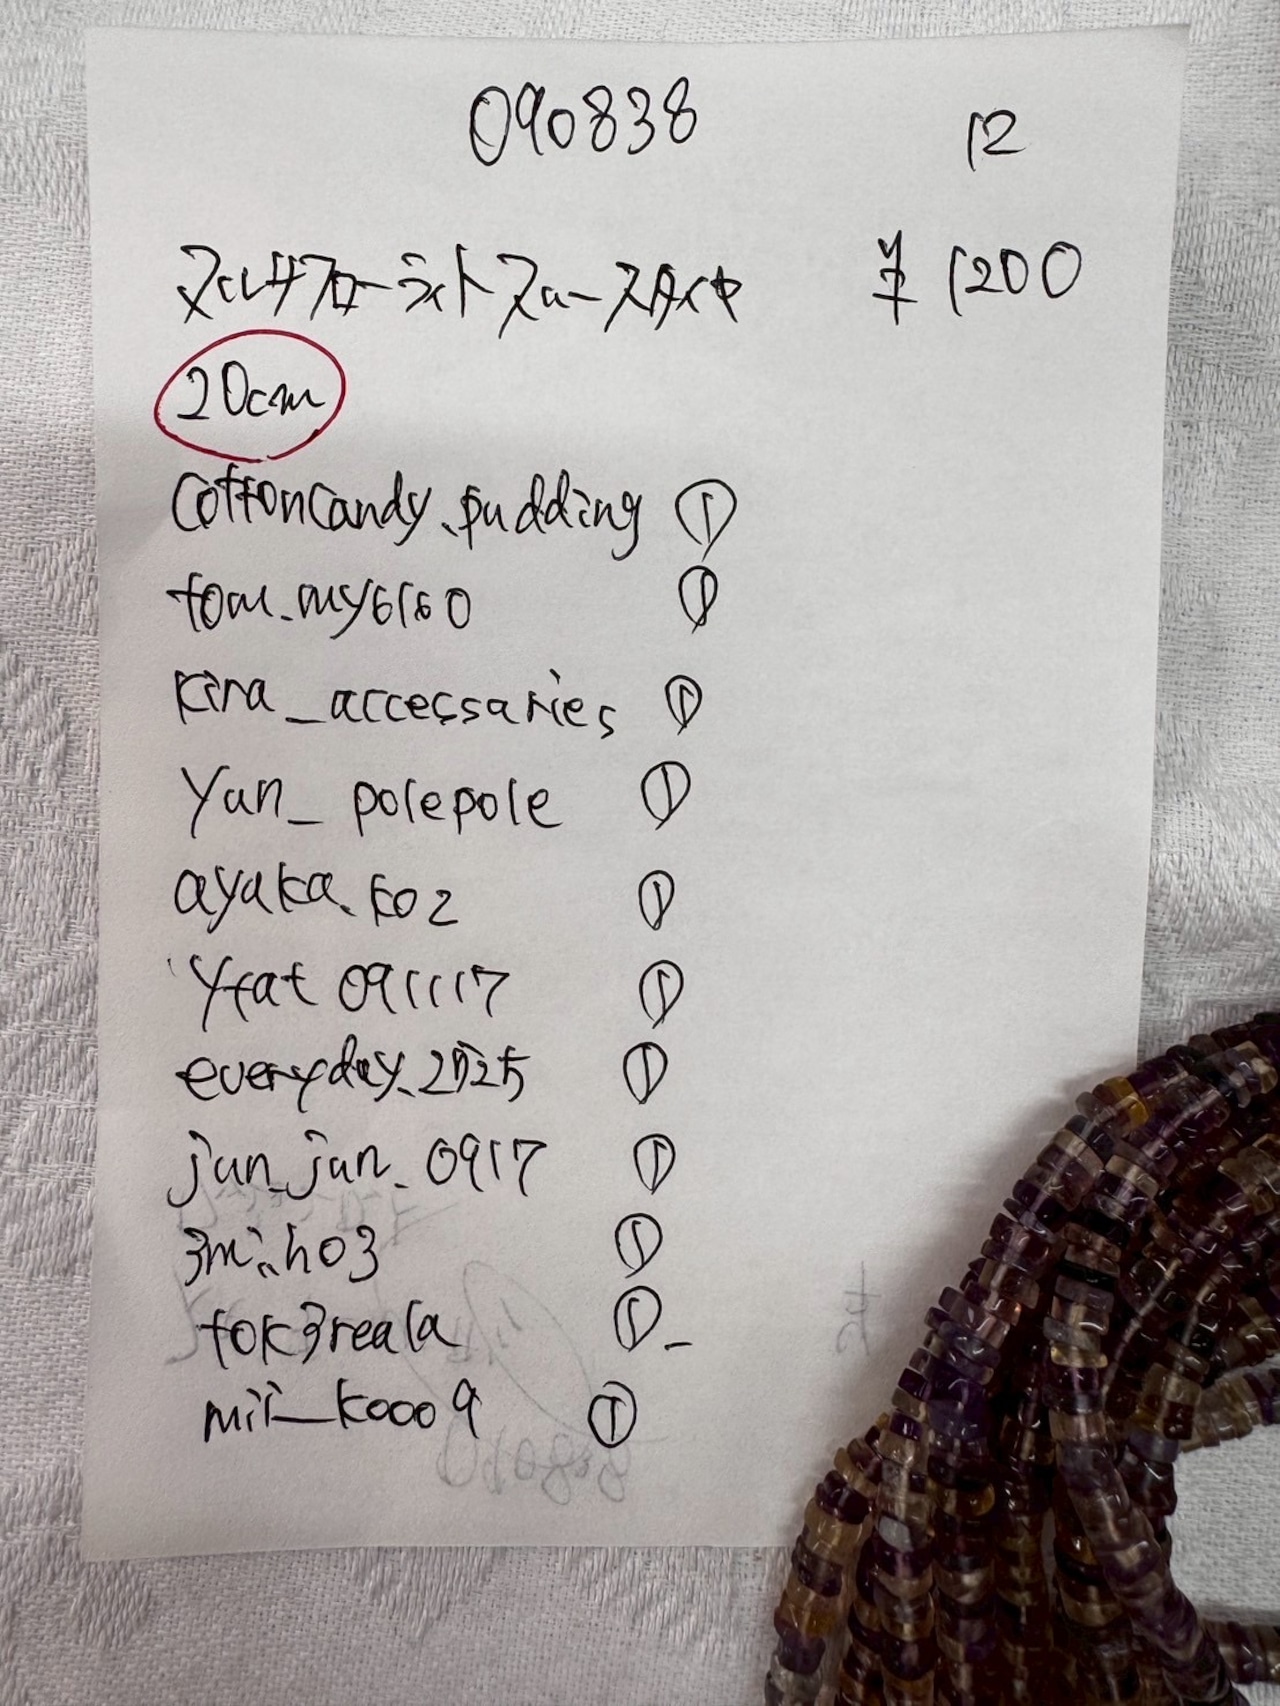 090838 12
マルチフローライトスムースタイヤ ¥1200
20cm
cottoncandy.pudding ①
tom.my6160 ①
kira_accessaries ①
yun_polepole ①
ayaka.k02 ①
yfat091117 ①
everyday.2525 ①
jun_jun_0917 ①
3mi.h03 ①
tok3reala ①
mii_k0009 ①